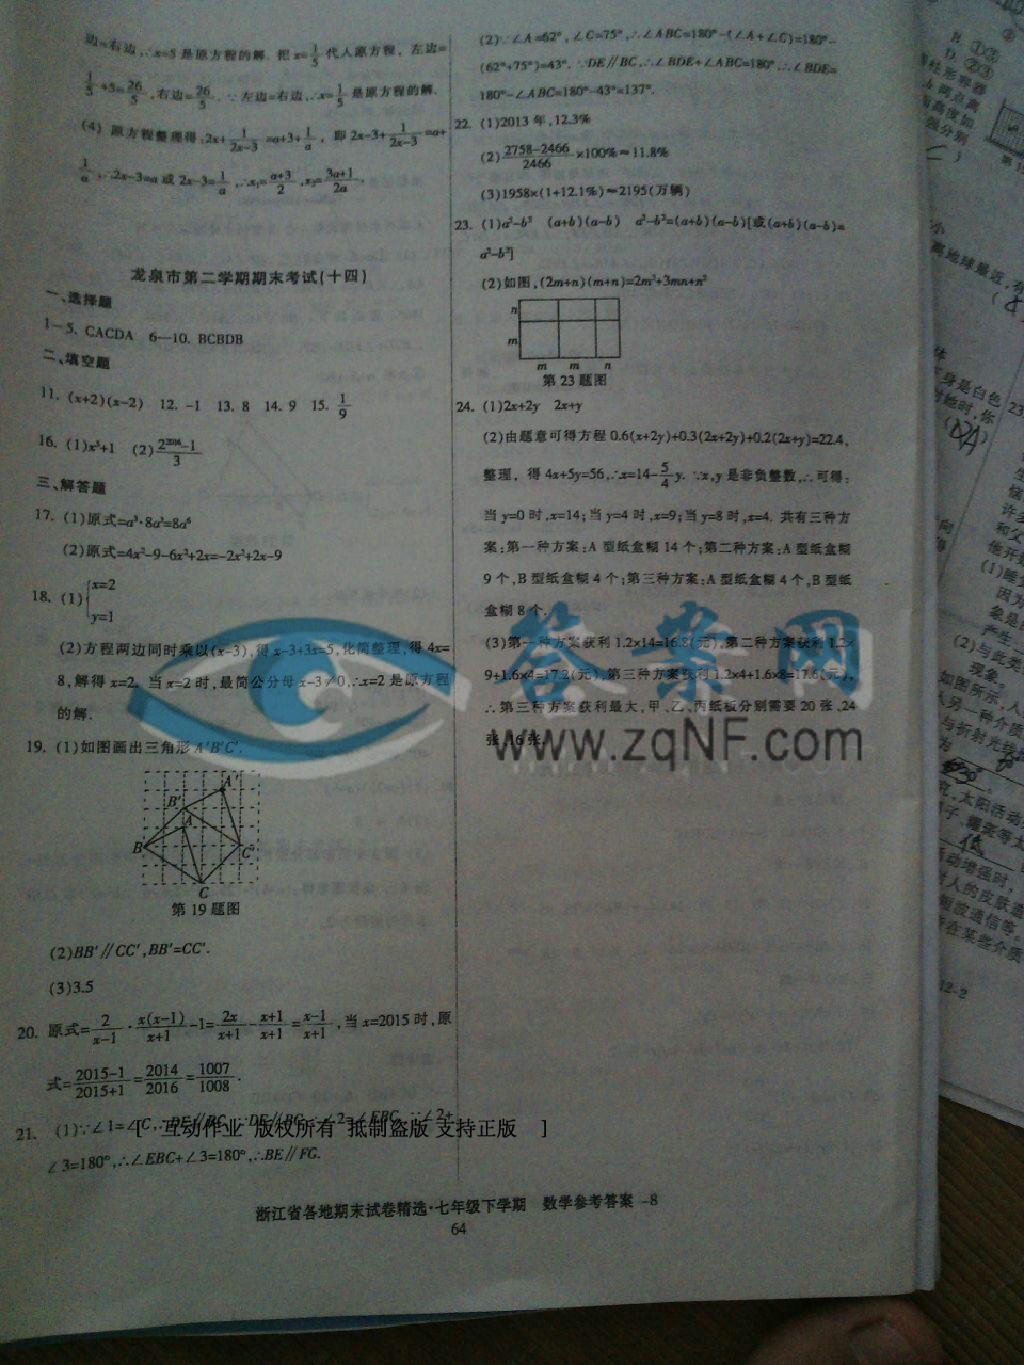 边=右边,∴x=5是原方程的解. 把x=1/5代入原方程, 左边=
1/5+5=26/5,右边=26/5. ∵左边=右边,∴x=1/5是原方程的解.
(4) 原方程整理得:2x+1/(2x-3)=a+3+1/a, 即2x-3+1/(2x-3)=a+
1/a, ∴2x-3=a或2x-3=1/a,∴x₁=(a+3)/2,x₂=(3a+1)/2a.
龙泉市第二学期期末考试(十四)
一、选择题
1—5. CACDA 6—10. BCBDB
二、填空题
11. (x+2)(x-2) 12. -1 13. 8 14. 9 15. 1/9
16. (1)x⁵+1 (2)(2²⁰¹⁶-1)/3
三、解答题
17. (1)原式=a³·8a³=8a⁶
(2)原式=4x²-9-6x²+2x=-2x²+2x-9
18. (1){x=2
y=1
(2)方程两边同时乘以(x-3),得x-3+3x=5,化简整理,得4x=
8,解得x=2。当x=2时,最简公分母x-3≠0,∴x=2是原方程
的解.
19. (1)如图画出三角形A′B′C′.
A′
B′
A
B
C′
C
第19题图
(2)BB′∥CC′,BB′=CC′.
(3)3.5
20. 原式=2/(x-1)·x(x-1)/(x+1)-1=2x/(x+1)-(x+1)/(x+1)=(x-1)/(x+1),当x=2015时,原
式=(2015-1)/(2015+1)=2014/2016=1007/1008.
21. (1)∵∠1=∠C,∴DE∥BC. ∵DE∥BC,∴∠2=∠EBC. ∵∠2+
∠3=180°,∴∠EBC+∠3=180°,∴BE∥FG.
[ 互动作业 版权所有 抵制盗版 支持正版 ]
(2)∵∠A=62°,∠C=75°,∴∠ABC=180°-(∠A+∠C)=180°-
(62°+75°)=43°. ∵DE∥BC,∴∠BDE+∠ABC=180°,∴∠BDE=
180°-∠ABC=180°-43°=137°.
22. (1)2013年,12.3%
(2)(2758-2466)/2466×100%≈11.8%
(3)1958×(1+12.1%)≈2195(万辆)
23. (1)a²-b² (a+b)(a-b) a²-b²=(a+b)(a-b)[或(a+b)(a-b)=
a²-b²]
(2)如图,(2m+n)(m+n)=2m²+3mn+n²
n
m
m m n
第23题图
24. (1)2x+2y 2x+y
(2)由题意可得方程0.6(x+2y)+0.3(2x+2y)+0.2(2x+y)=22.4,
整理, 得4x+5y=56,∴x=14-5/4y. ∵x,y是非负整数,∴可得:
当y=0时,x=14;当y=4时,x=9;当y=8时,x=4. 共有三种方
案:第一种方案:A型纸盒糊14个;第二种方案:A型纸盒糊
9个,B型纸盒糊4个;第三种方案:A型纸盒糊4个,B型纸
盒糊8个.
(3)第一种方案获利1.2×14=16.8(元),第二种方案获利1.2×
9+1.6×4=17.2(元),第三种方案获利1.2×4+1.6×8=17.6(元),
∴第三种方案获利最大,甲、乙、丙纸板分别需要20张,24
张,16张.
答案网
www.zqNF.com
浙江省各地期末试卷精选·七年级下学期 数学参考答案 -8
64
B. ①③
D. ②③
(2)与此类
现象。
如图所示,人
与折射光线
太阳活动
活动增强时,
人的皮肤造
短波通信等。
在某些介质
12-2